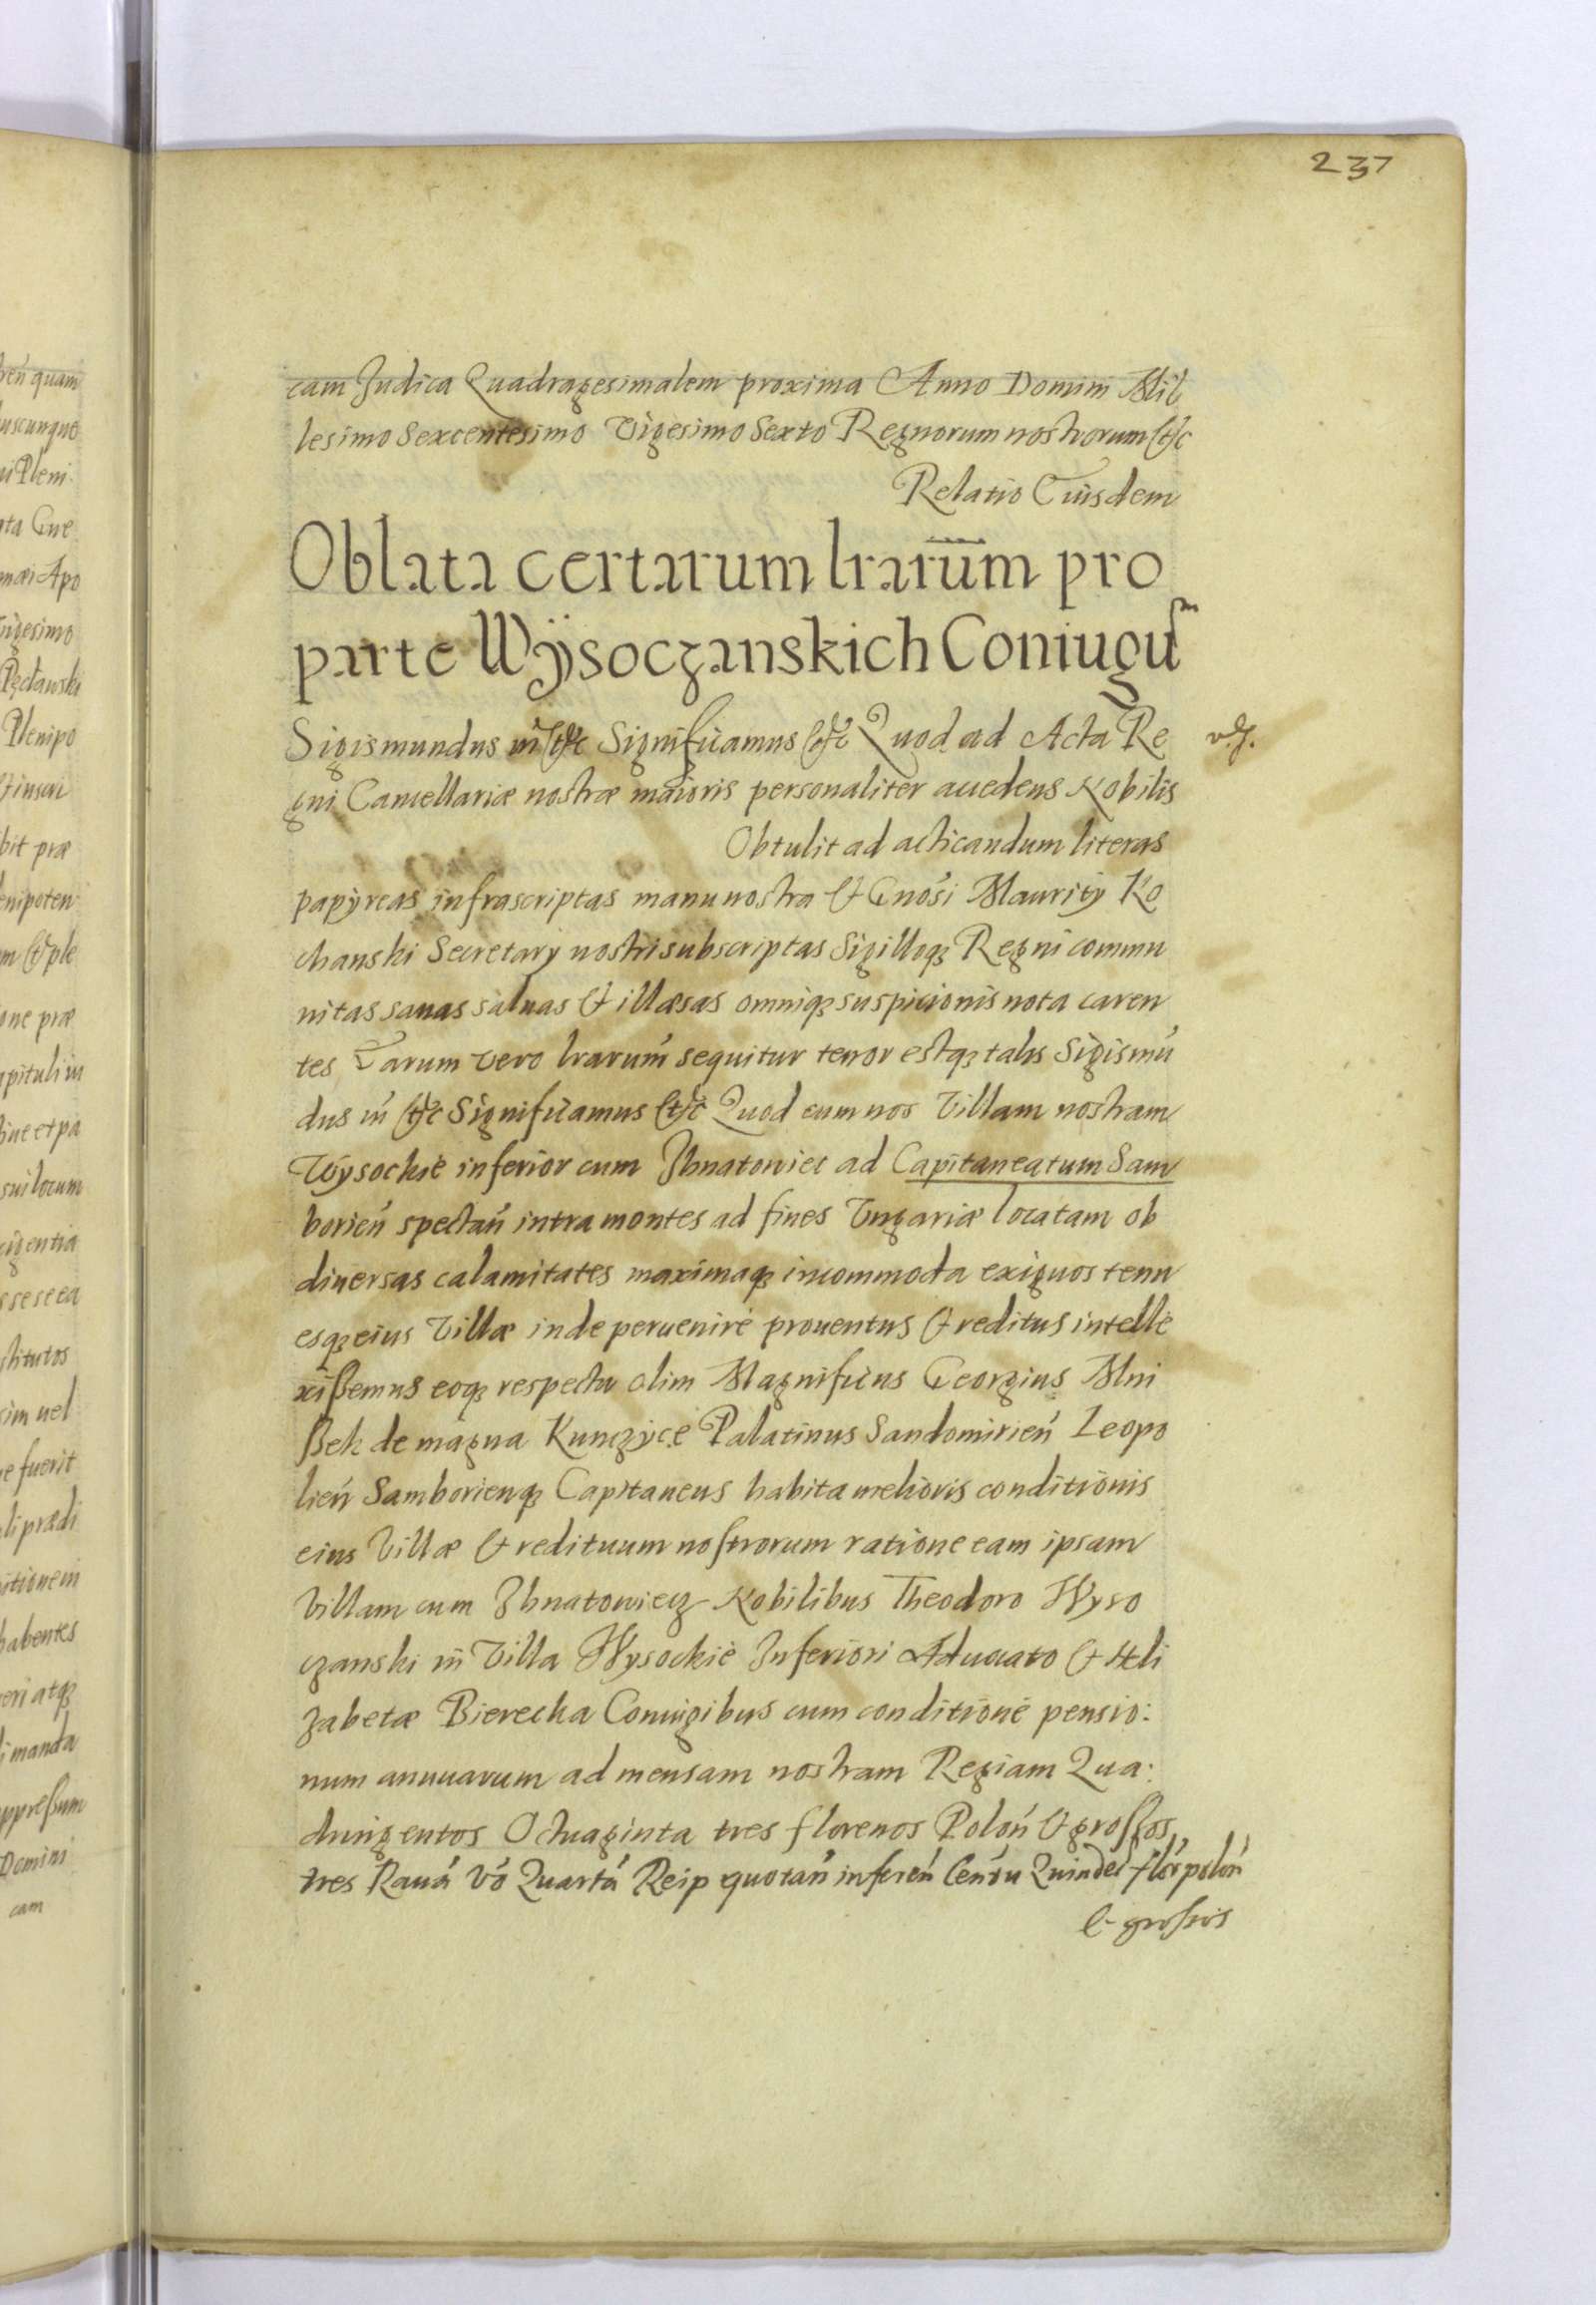 237
cam Judica Quadragesimalem proxima Anno Domini Mil
lesimo Sexcentesimo Vigesimo Sexto Regnorum nostrorum etc
Relatio Eiusdem
Oblata certarum lrarum pro
parte Wÿsoczanskich Coniugum
Sigismundus iñ etc Significamus etc Quod ad Acta Re
gni Cancellariæ nostræ maioris personaliter accedens Nobilis
Obtulit ad acticandum literas
papyreas infrascriptas manu nostra et Gnosi Maurity Ko
chanski Secretary nostri subscriptas Sigilloq3 Regni commu
nitas sanas saluas et illæsas omniq3 suspicionis nota caren
tes Earum vero lrarum sequitur tenor estq3 talis Sigismu
dus iñ etc Significamus etc Quod cum nos Villam nostram
Wysockie inferior cum Jhnatowiec ad Capitaneatum Sam
borieñ spectañ intra montes ad fines Vngariæ locatam ob
diuersas calamitates maximaq3 incommoda exiguos tenu
esq3 eius Villæ inde peruenire prouentus et reditus intelle
xißemus eoq3 respectu olim Magnificus Georgius Mni
ßek de magna Kunczyce Palatinus Sandomirieñ Leopo
lieñ Samborienq3 Capitaneus habita melioris conditionis
eius Villæ et redituum nostrorum ratione eam ipsam
Villam cum Jhnatowiecz Nobilibus Theodoro Wyso
czanski in Villa Wysockie Inferiori Aduocato et Heli
zabetæ Bierecka Coniugibus cum conditione pensio:
num annuarum ad mensam nostram Regiam Qua:
dringentos Octuaginta tres florenos Poloñ et großos
tres Rauá vó Quartá Reip quotañ infereñ Centu Quindec flor poloñ
et großos